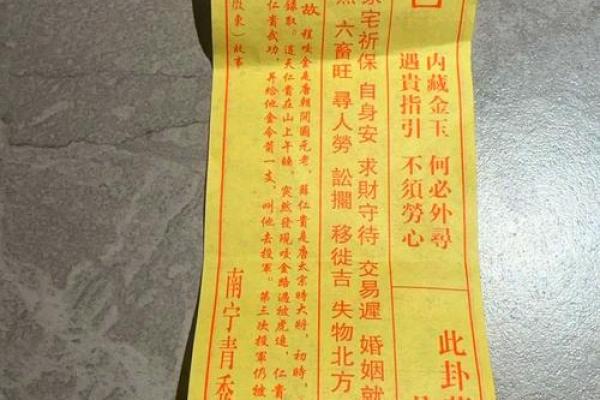 内藏金玉 何必外尋
遇貴指引 不須勞心
此卦
宅祈保 自身安 求財守待 交易遲 婚姻就
六畜旺 尋人勞 訟擱 移徙吉 失物北方
故
程咬金是唐朝開國元老，薛仁貴是唐太宗時大將，初時，
錄取。這天仁貴在山上午睡，突然發現咬金路過被虎追，仁貴
仁貴武功，并給他金令箭一支，叫他去投軍。第三次投軍仍被
東）故事
南宁青秀